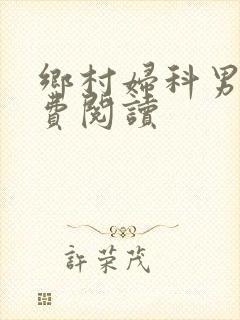 鄉村婦科男
費閱讀
許榮茂